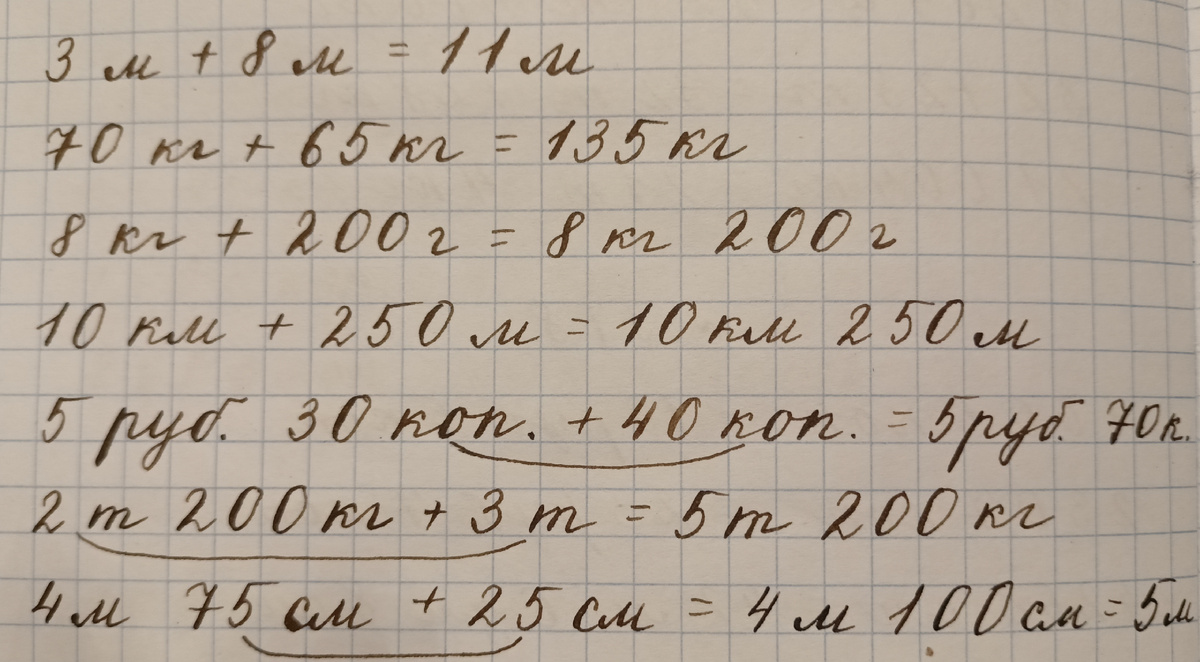 3 м + 8 м = 11 м
70 кг + 65 кг = 135 кг
8 кг + 200 г = 8 кг 200 г
10 км + 250 м = 10 км 250 м
5 руб. 30 коп. + 40 коп. = 5 руб. 70 к.
2 т 200 кг + 3 т = 5 т 200 кг
4 м 75 см + 25 см = 4 м 100 см = 5 м